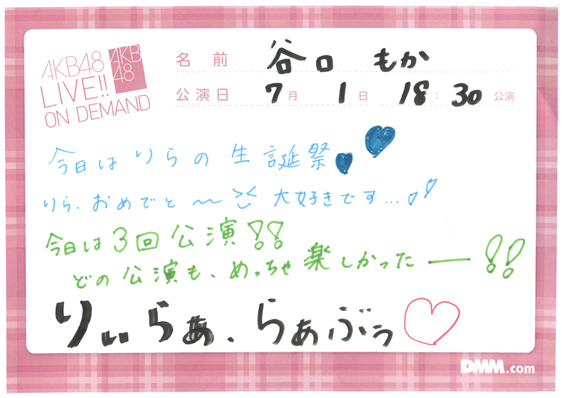 AKB48
LIVE!!
ON DEMAND
AKB
48
名前 谷口 もか
公演日 7月 1日 18:30公演
今日はりらの生誕祭
りら、おめでと〜〜 大好きです...!!
今日は3回公演!!
どの公演も、めっちゃ楽しかったー!!
りぃらぁ、らぁぶぅ♡
DMM.com